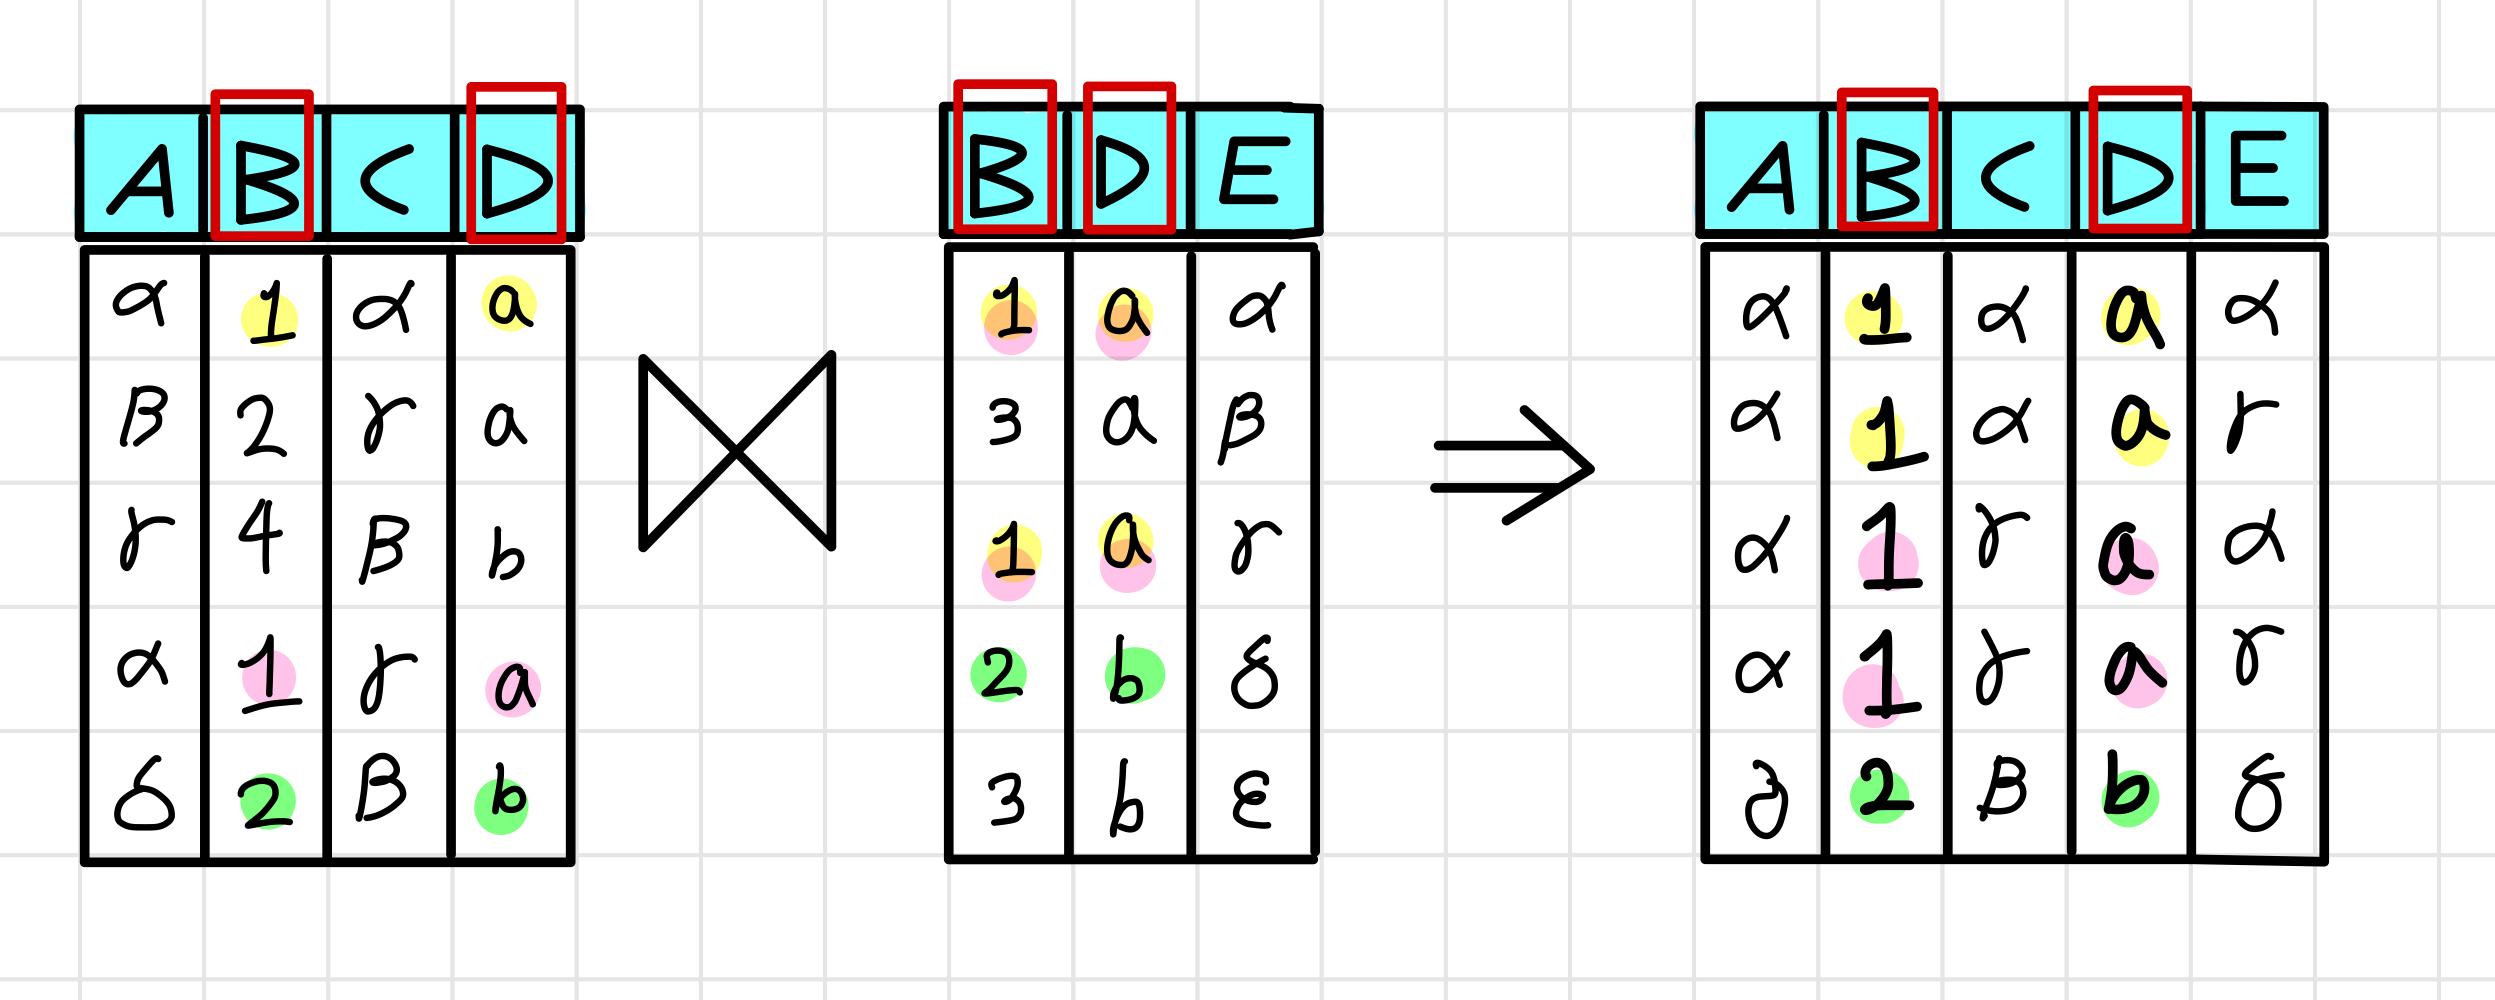 A B C D
α 1 α a
β 2 γ a
γ 4 β b
α 1 γ a
δ 2 β b
⋈
B D E
1 a α
3 a β
1 a γ
2 b δ
3 b ε
⇒
A B C D E
α 1 α a α
α 1 α a γ
α 1 γ a α
α 1 γ a γ
δ 2 β b δ